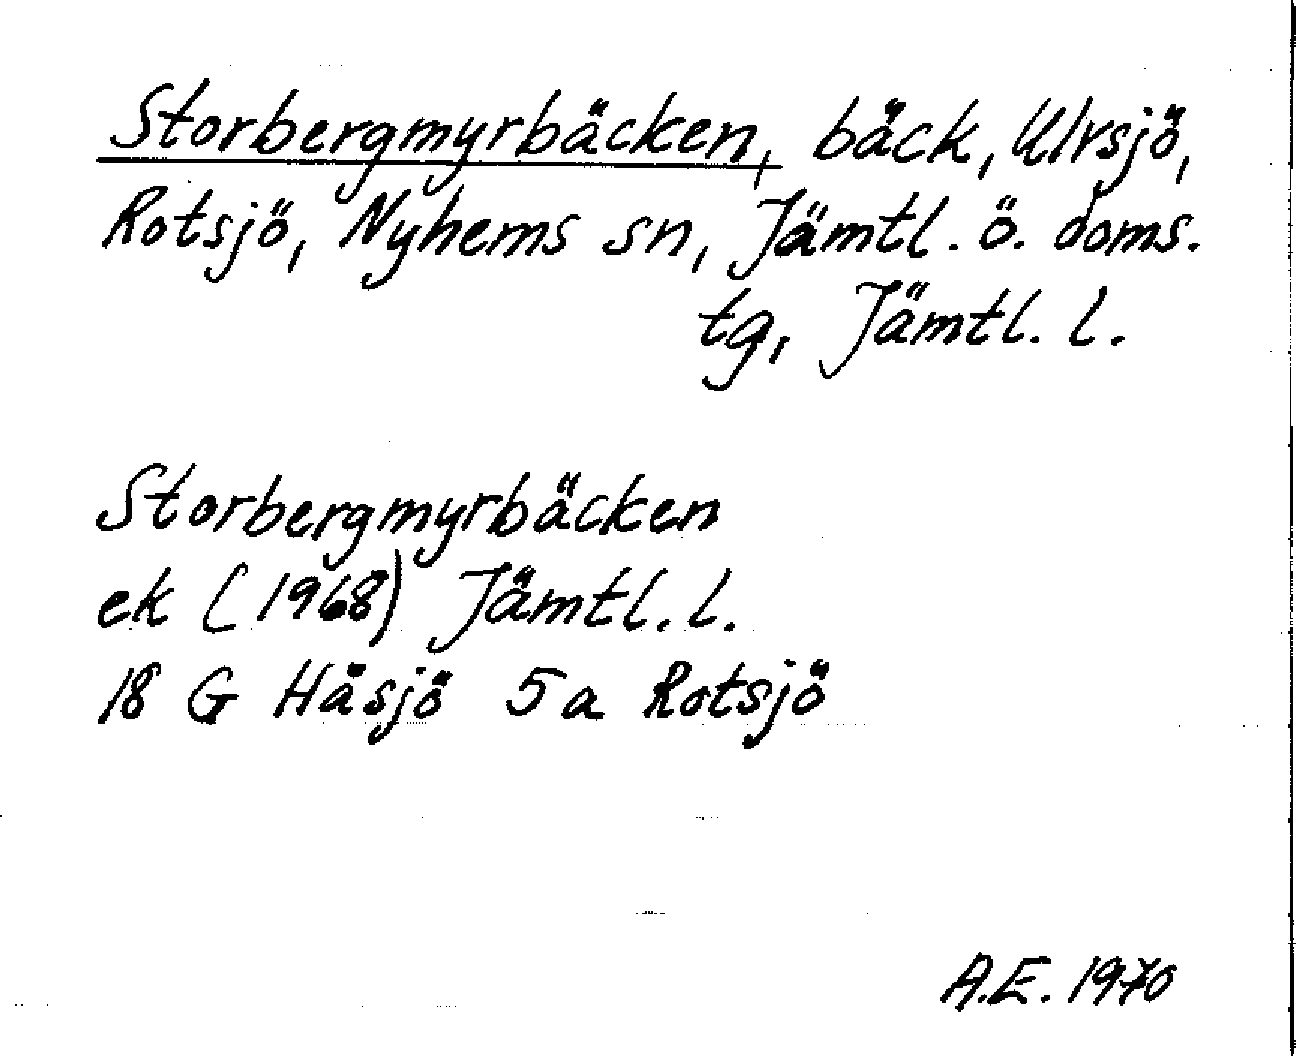 Storbergmyrbäcken, bäck, Ulvsjö,
Rotsjö, Nyhems sn, Jämtl. ö. doms.
tg, Jämtl. l.
Storbergmyrbäcken
ek (1968) Jämtl. l.
18 G Håsjö 5a Rotsjö
A.E. 1970